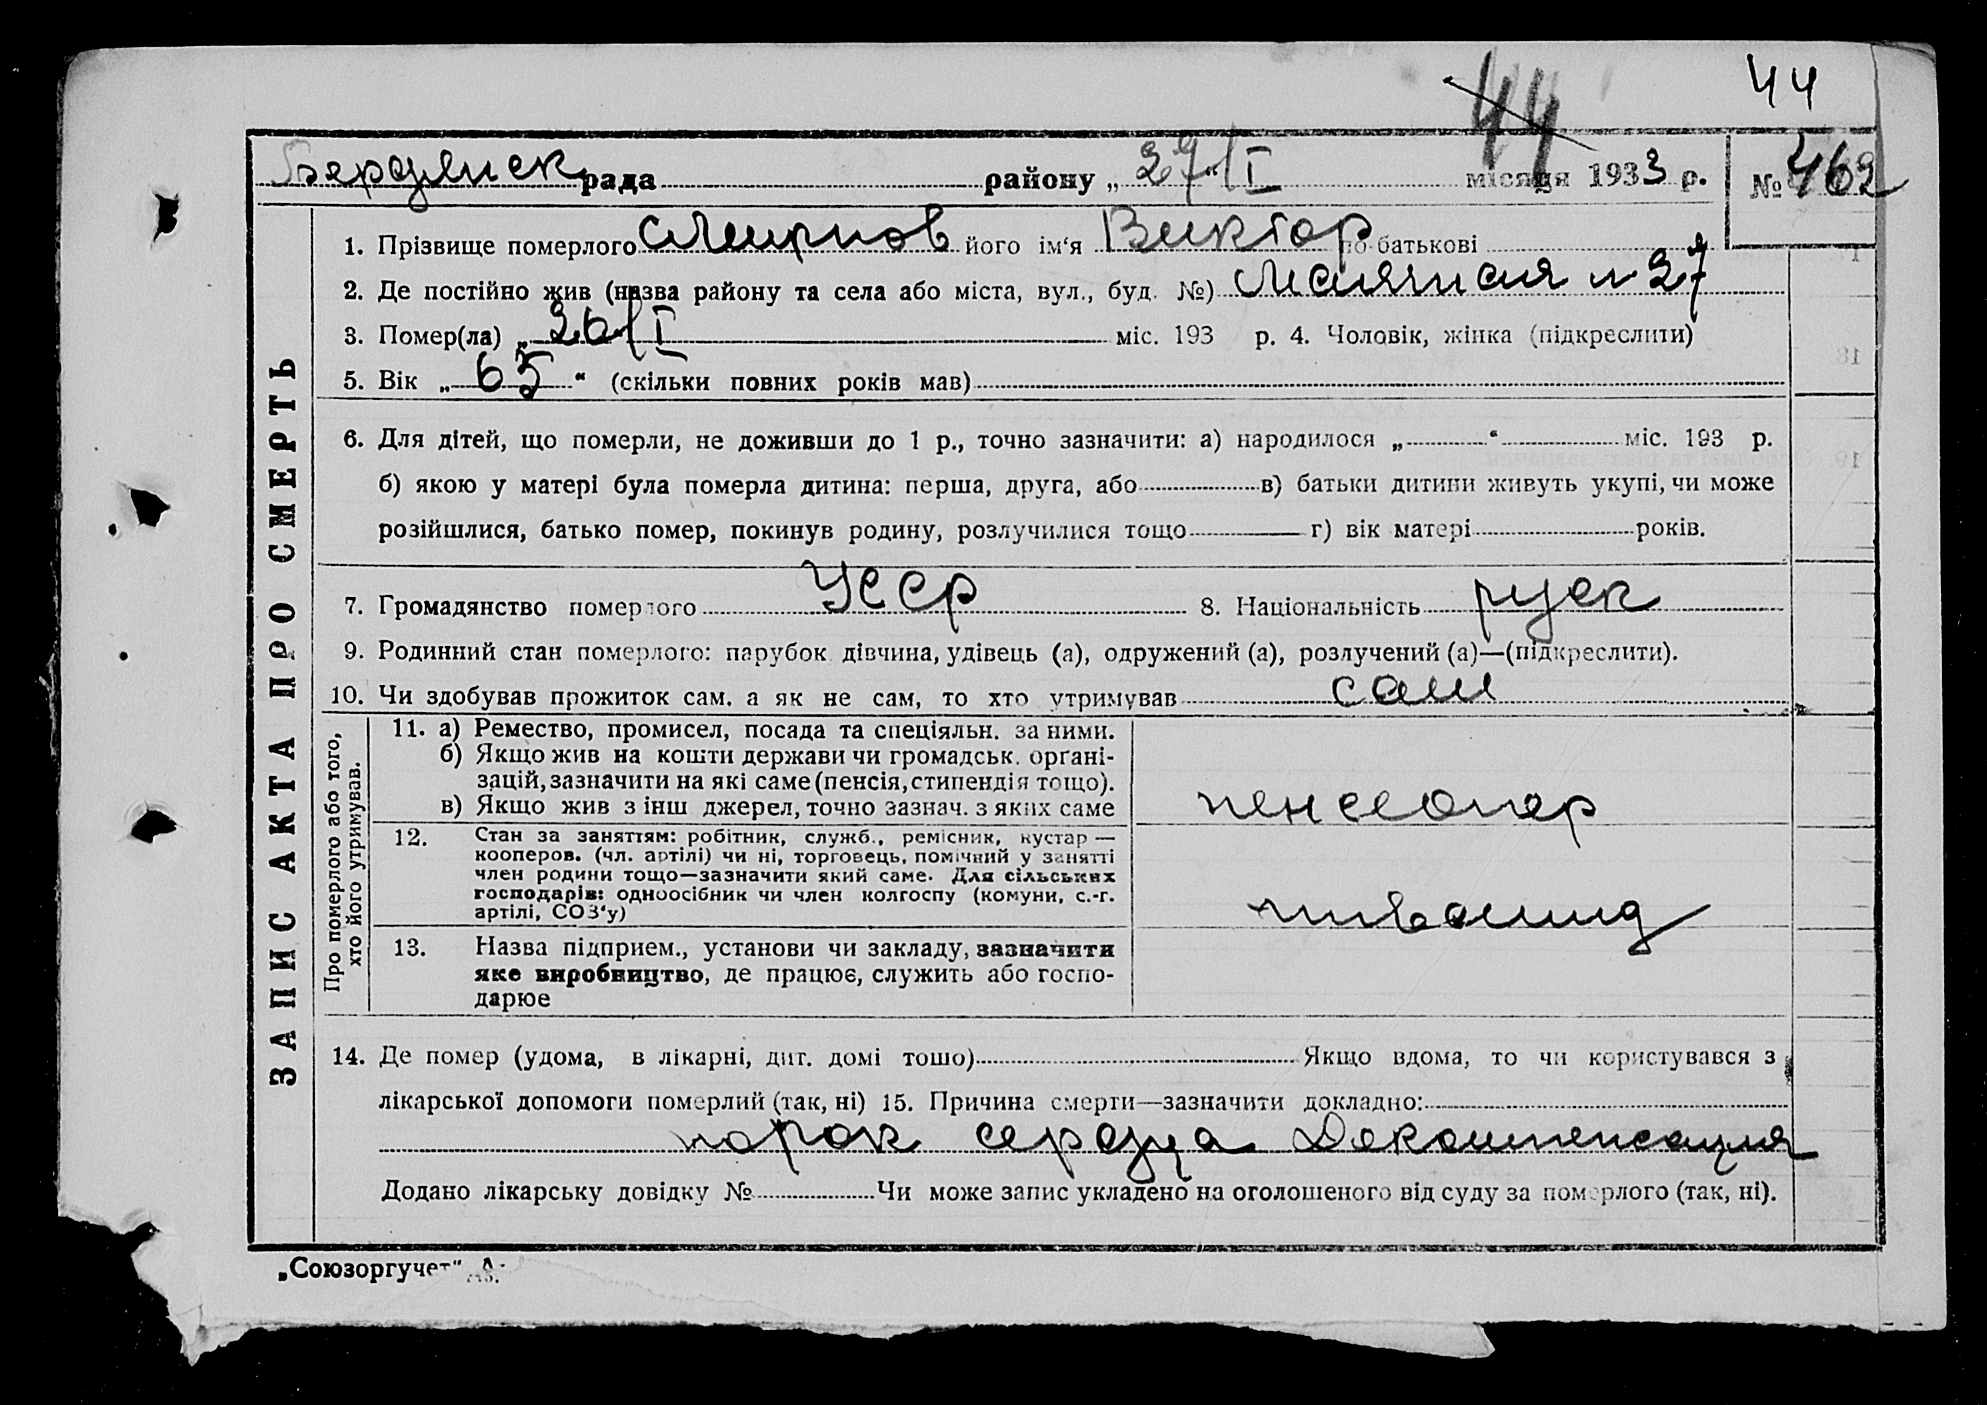 44 44
Бердянск рада района „27“/I місяця 1933 р. № 462
1. Прізвище померлого Смирнов його ім'я Виктор по-батькові
2. Де постійно жив (назва району та села або міста, вул., буд. №) н 37
3. Помер(ла) „26/I міс. 193 р. 4. Чоловік, жінка (підкреслити)
5. Вік „65“ (скільки повних років мав)
6. Для дітей, що померли, не доживши до 1 р., точно зазначити: а) народилося „ “ міс. 193 р.
б) якою у матері була померла дитина: перша, друга, або в) батьки дитини живуть укупі, чи може
розійшлися, батько помер, покинув родину, розлучилися тощо г) вік матері років.
7. Громадянство померлого УССР 8. Національність руск
9. Родинний стан померлого: парубок дівчина, удівець (а), одружений (а), розлучений (а)—(підкреслити).
10. Чи здобував прожиток сам. а як не сам, то хто утримував сам
ЗАПИС АКТА ПРО СМЕРТЬ
Про померлого або того,
хто його утримував.
11. а) Ремество, промисел, посада та спеціяльн. за ними.
б) Якщо жив на кошти держави чи громадськ. органі-
зацій, зазначити на які саме (пенсія, стипендія тощо).
в) Якщо жив з інш джерел, точно зазнач. з яких саме
пенсеонер
12. Стан за заняттям: робітник, служб., ремісник, кустар —
кооперов. (чл. артілі) чи ні, торговець, помічний у занятті
член родини тощо—зазначити який саме. Для сільських
господарів: одноосібник чи член колгоспу (комуни, с.-г.
артілі, СОЗ'у)
инвалид
13. Назва підприєм., установи чи закладу, зазначити
яке виробництво, де працює, служить або госпо-
дарює
14. Де помер (удома, в лікарні, дит. домі тошо) Якщо вдома, то чи користувався з
лікарської допомоги померлий (так, ні) 15. Причина смерти—зазначити докладно:
порок сердца Декомпенсация
Додано лікарську довідку № Чи може запис укладено на оголошеного від суду за померлого (так, ні).
„Союзоргучет“